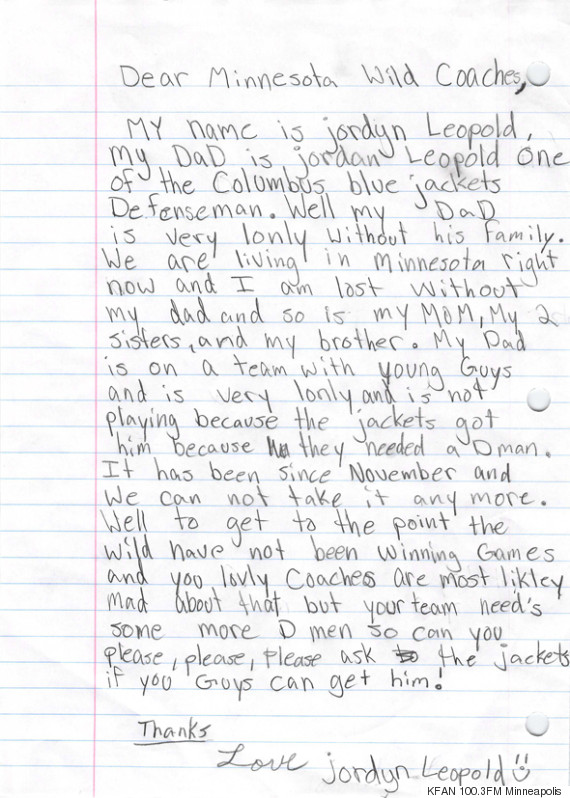 Dear Minnesota Wild Coaches,
My name is jordyn Leopold,
my DaD is jordan Leopold One
of the Columbus blue jackets
Defenseman. Well my DaD
is very lonly without his family.
We are living in Minnesota right
now and I am lost without
my dad and so is my MoM, My 2
sisters, and my brother. My Dad
is on a team with young Guys
and is very lonly and is not
playing because the jackets got
him because they needed a Dman.
It has been since November and
We can not take it any more.
Well to get to the point the
wild have not been winning Games
and you lovly Coaches are most likley
mad about that but your team need's
some more D men so can you
please, please, please ask the jackets
if you Guys can get him!
Thanks
Love jordyn Leopold
KFAN 100.3FM Minneapolis